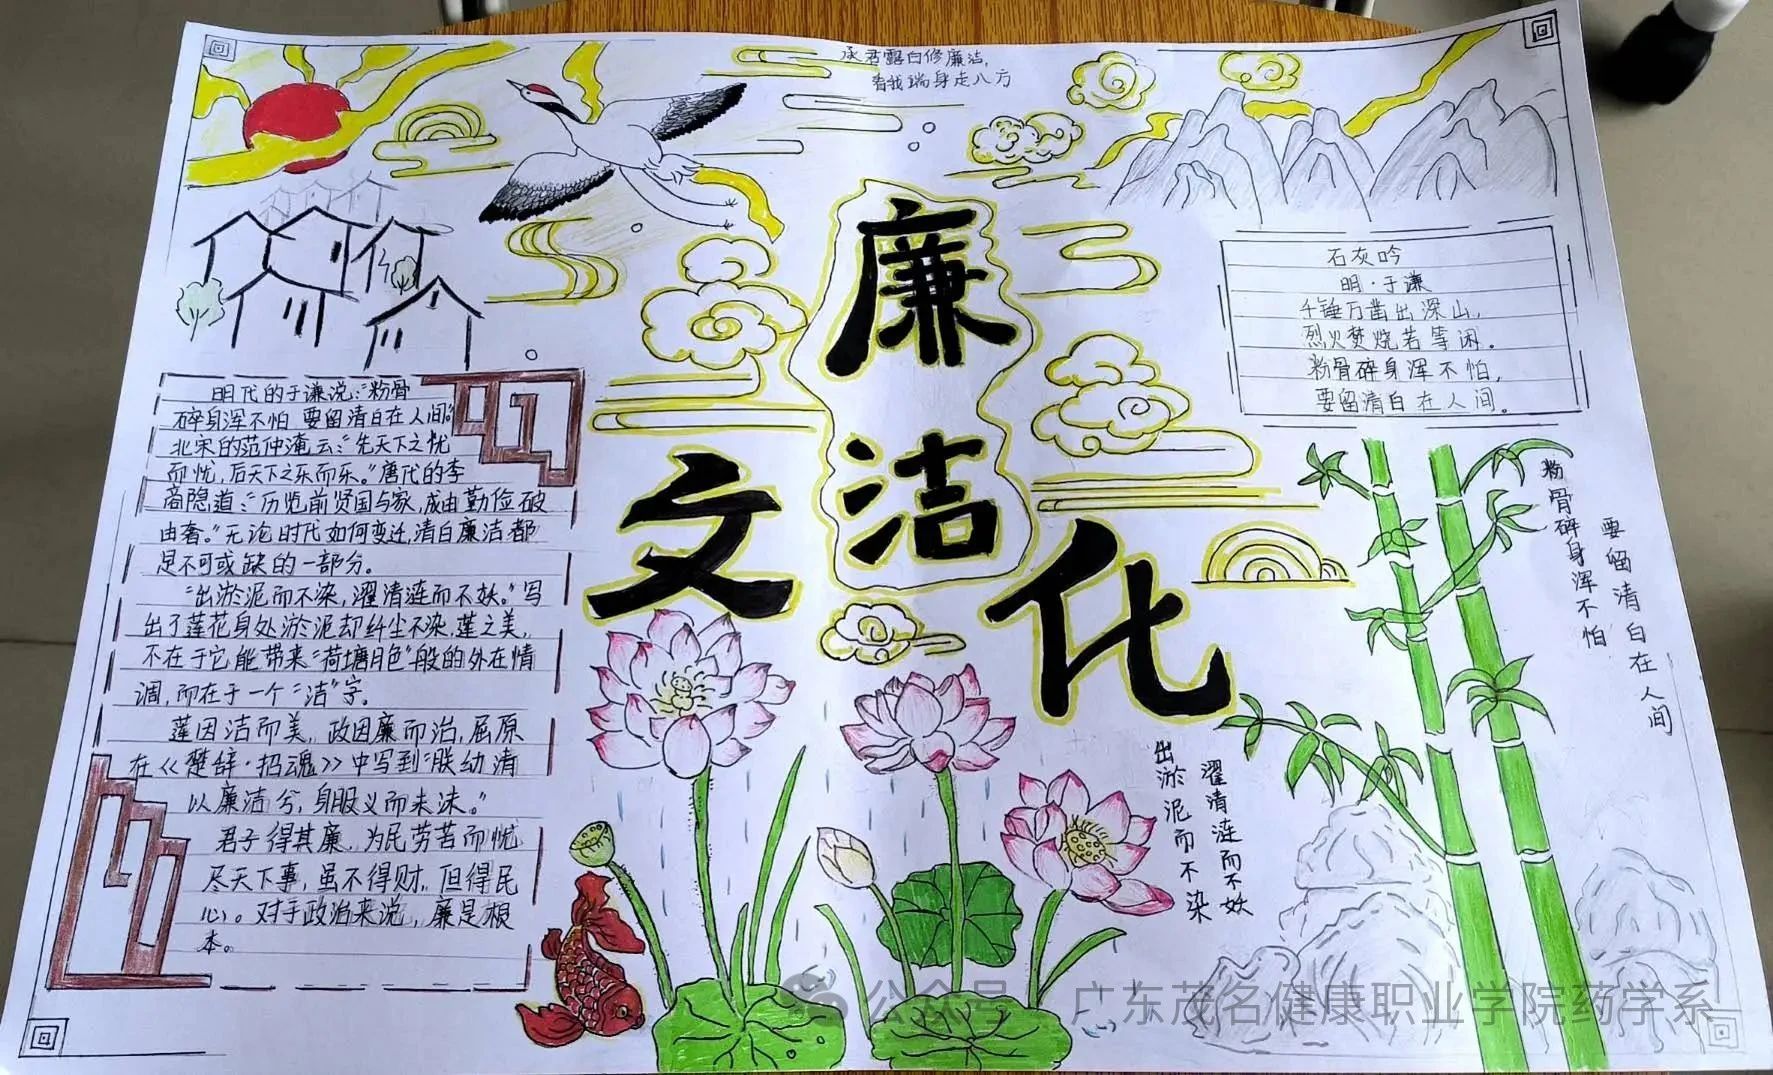 承君露白修廉洁，
看我端身走八方
廉
洁
文
化
石灰吟
明·于谦
千锤万凿出深山，
烈火焚烧若等闲。
粉骨碎身浑不怕，
要留清白在人间。
明代的于谦说：“粉骨
碎身浑不怕 要留清白在人间”
北宋的范仲淹云：“先天下之忧
而忧，后天下之乐而乐。”唐代的李
商隐道：“历览前贤国与家，成由勤俭破
由奢。”无论时代如何变迁，清白廉洁都
是不可或缺的一部分。
“出淤泥而不染，濯清涟而不妖。”写
出了莲花身处淤泥却纤尘不染，莲之美，
不在于它能带来“荷塘月色”般的外在情
调，而在于一个“洁”字。
莲因洁而美，政因廉而治，屈原
在《楚辞·招魂》中写到“朕幼清
以廉洁兮，身服义而未沫。”
君子得其廉，为民劳苦而忧
尽天下事，虽不得财，但得民
心。对于政治来说，廉是根
本。
粉骨碎身浑不怕
要留清白在人间
出淤泥而不染
濯清涟而不妖
公众号 · 广东茂名健康职业学院药学系